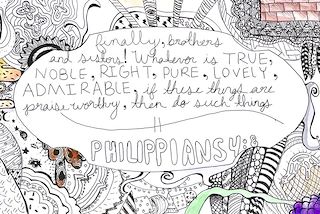 finally, brothers
and sisters! Whatever is TRUE,
NOBLE, RIGHT, PURE, LOVELY,
ADMIRABLE, if these things are
praiseworthy, then do such things
PHILIPPIANS 4:8